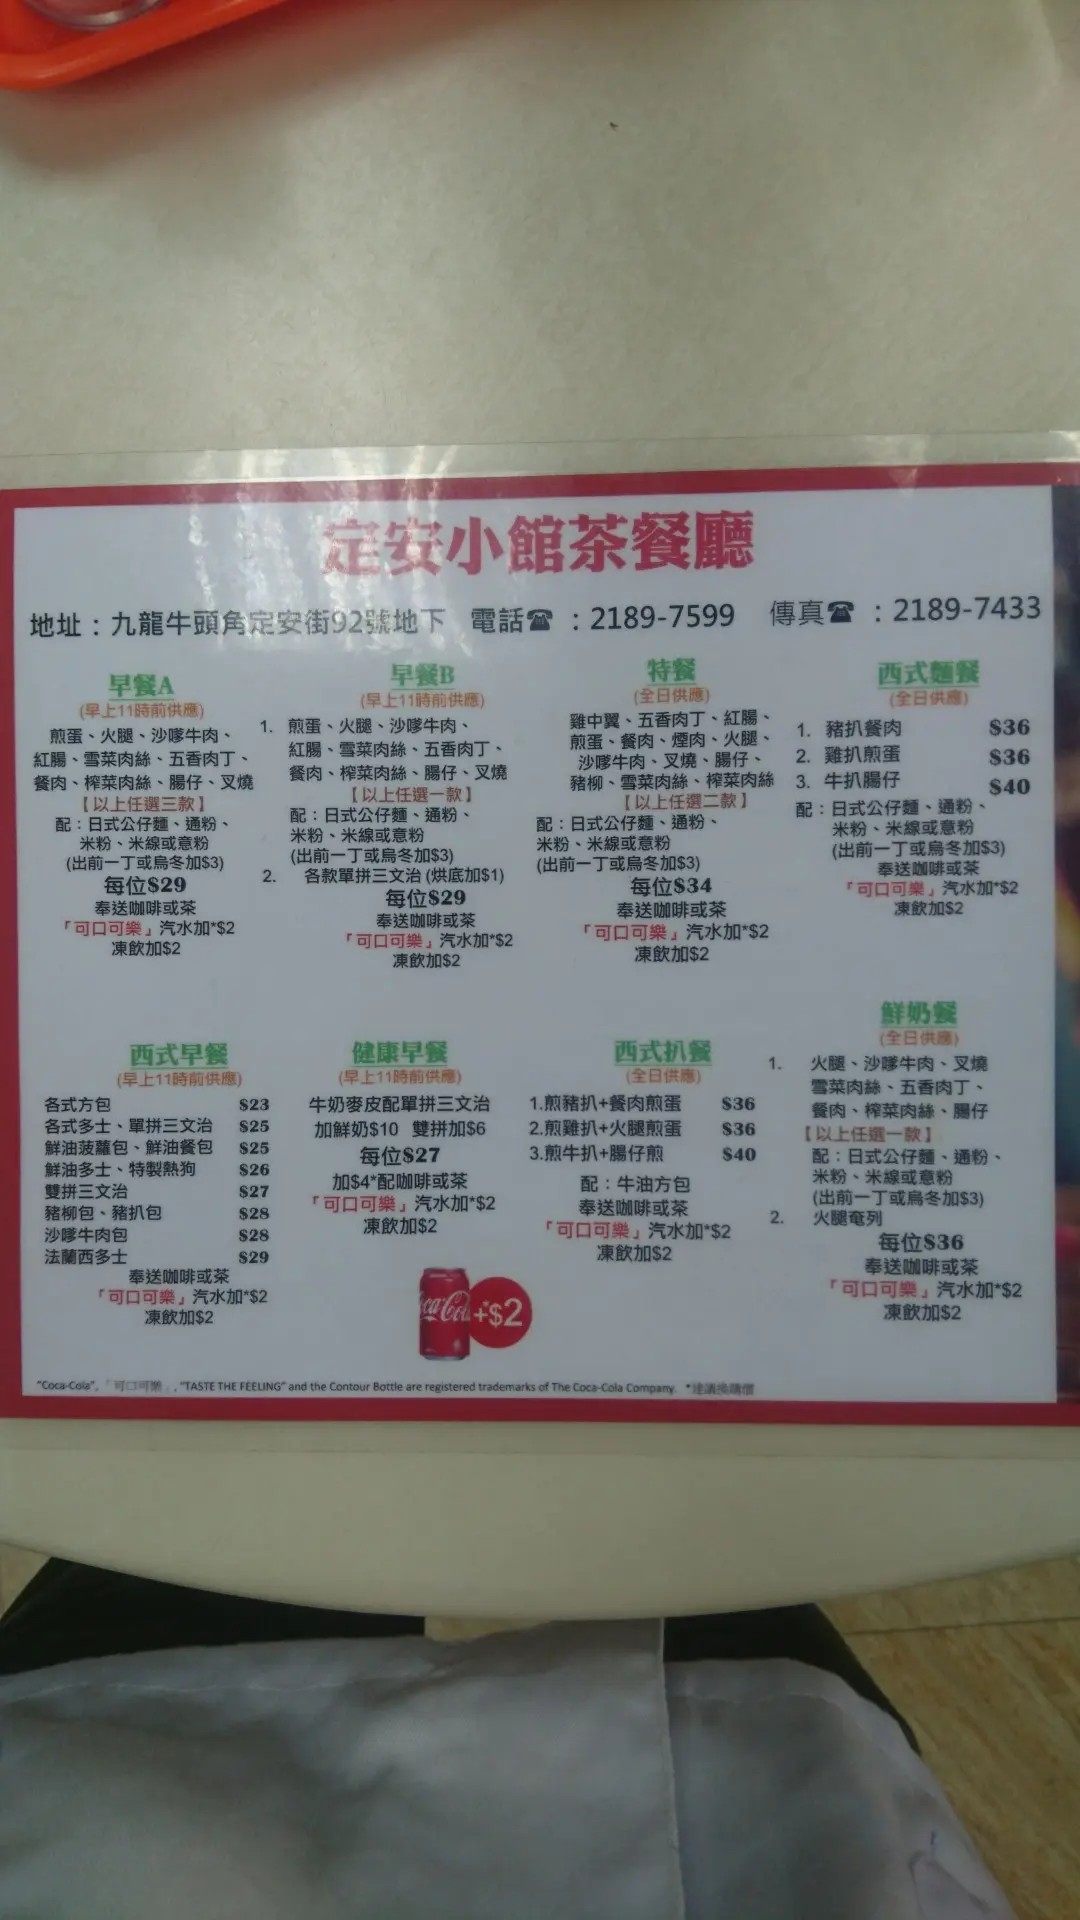 定安小館茶餐廳
地址：九龍牛頭角定安街92號地下 電話☎：2189-7599 傳真☎：2189-7433
早餐A
(早上11時前供應)
煎蛋、火腿、沙嗲牛肉、
紅腸、雪菜肉絲、五香肉丁、
餐肉、榨菜肉絲、腸仔、叉燒
【以上任選三款】
配：日式公仔麵、通粉、
米粉、米線或意粉
(出前一丁或烏冬加$3)
每位$29
奉送咖啡或茶
「可口可樂」汽水加*$2
凍飲加$2
早餐B
(早上11時前供應)
1. 煎蛋、火腿、沙嗲牛肉、
紅腸、雪菜肉絲、五香肉丁、
餐肉、榨菜肉絲、腸仔、叉燒
【以上任選一款】
配：日式公仔麵、通粉、
米粉、米線或意粉
(出前一丁或烏冬加$3)
2. 各款單拼三文治 (烘底加$1)
每位$29
奉送咖啡或茶
「可口可樂」汽水加*$2
凍飲加$2
特餐
(全日供應)
雞中翼、五香肉丁、紅腸、
煎蛋、餐肉、煙肉、火腿、
沙嗲牛肉、叉燒、腸仔、
豬柳、雪菜肉絲、榨菜肉絲
【以上任選二款】
配：日式公仔麵、通粉、
米粉、米線或意粉
(出前一丁或烏冬加$3)
每位$34
奉送咖啡或茶
「可口可樂」汽水加*$2
凍飲加$2
西式麵餐
(全日供應)
1. 豬扒餐肉 $36
2. 雞扒煎蛋 $36
3. 牛扒腸仔 $40
配：日式公仔麵、通粉、
米粉、米線或意粉
(出前一丁或烏冬加$3)
奉送咖啡或茶
「可口可樂」汽水加*$2
凍飲加$2
西式早餐
(早上11時前供應)
各式方包 $23
各式多士、單拼三文治 $25
鮮油菠蘿包、鮮油餐包 $25
鮮油多士、特製熱狗 $26
雙拼三文治 $27
豬柳包、豬扒包 $28
沙嗲牛肉包 $28
法蘭西多士 $29
奉送咖啡或茶
「可口可樂」汽水加*$2
凍飲加$2
健康早餐
(早上11時前供應)
牛奶麥皮配單拼三文治
加鮮奶$10 雙拼加$6
每位$27
加$4*配咖啡或茶
「可口可樂」汽水加*$2
凍飲加$2
Coca-Cola +*$2
西式扒餐
(全日供應)
1.煎豬扒+餐肉煎蛋 $36
2.煎雞扒+火腿煎蛋 $36
3.煎牛扒+腸仔煎 $40
配：牛油方包
奉送咖啡或茶
「可口可樂」汽水加*$2
凍飲加$2
鮮奶餐
(全日供應)
1. 火腿、沙嗲牛肉、叉燒
雪菜肉絲、五香肉丁、
餐肉、榨菜肉絲、腸仔
【以上任選一款】
配：日式公仔麵、通粉、
米粉、米線或意粉
(出前一丁或烏冬加$3)
2. 火腿奄列
每位$36
奉送咖啡或茶
「可口可樂」汽水加*$2
凍飲加$2
"Coca-Cola", 「可口可樂」, "TASTE THE FEELING" and the Contour Bottle are registered trademarks of The Coca-Cola Company. *建議換購價